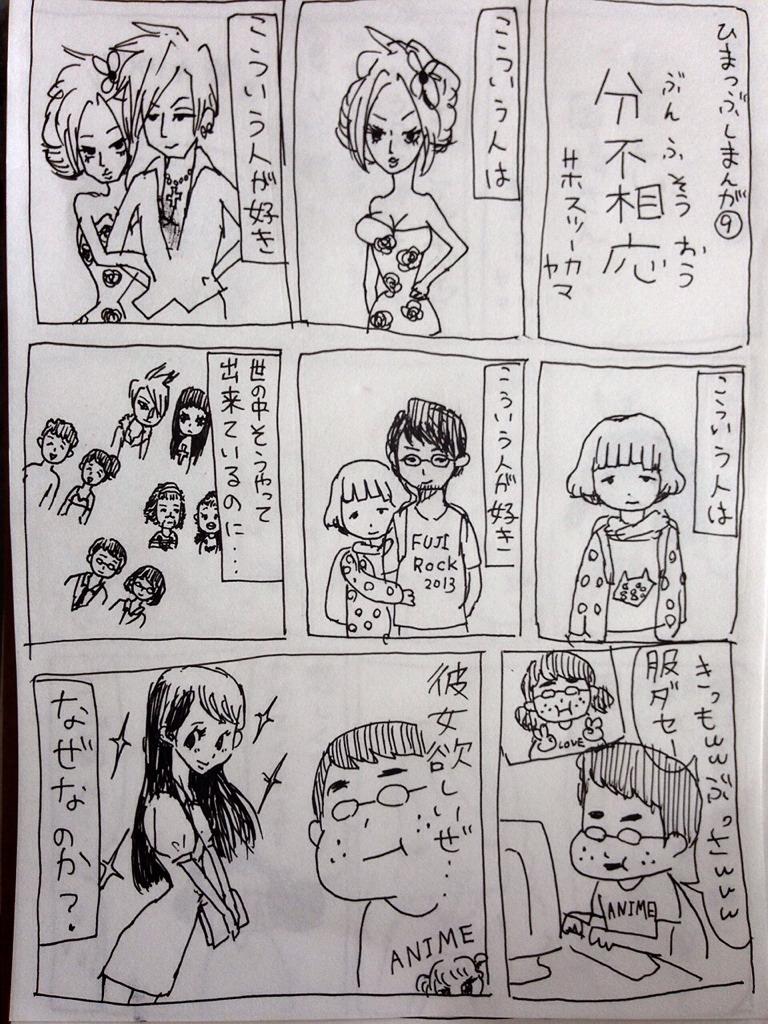 ひまつぶしまんが⑨
ぶんふそうおう
分不相応
#ホスツーカヤマ
こういう人は
こういう人が好き
こういう人は
こういう人が好き
FUJI
Rock
2013
世の中そうやって
出来ているのに…
きっもwwぶっさwww
服ダセー
LOVE
ANIME
彼女欲しいぜ…
ANIME
なぜなのか?